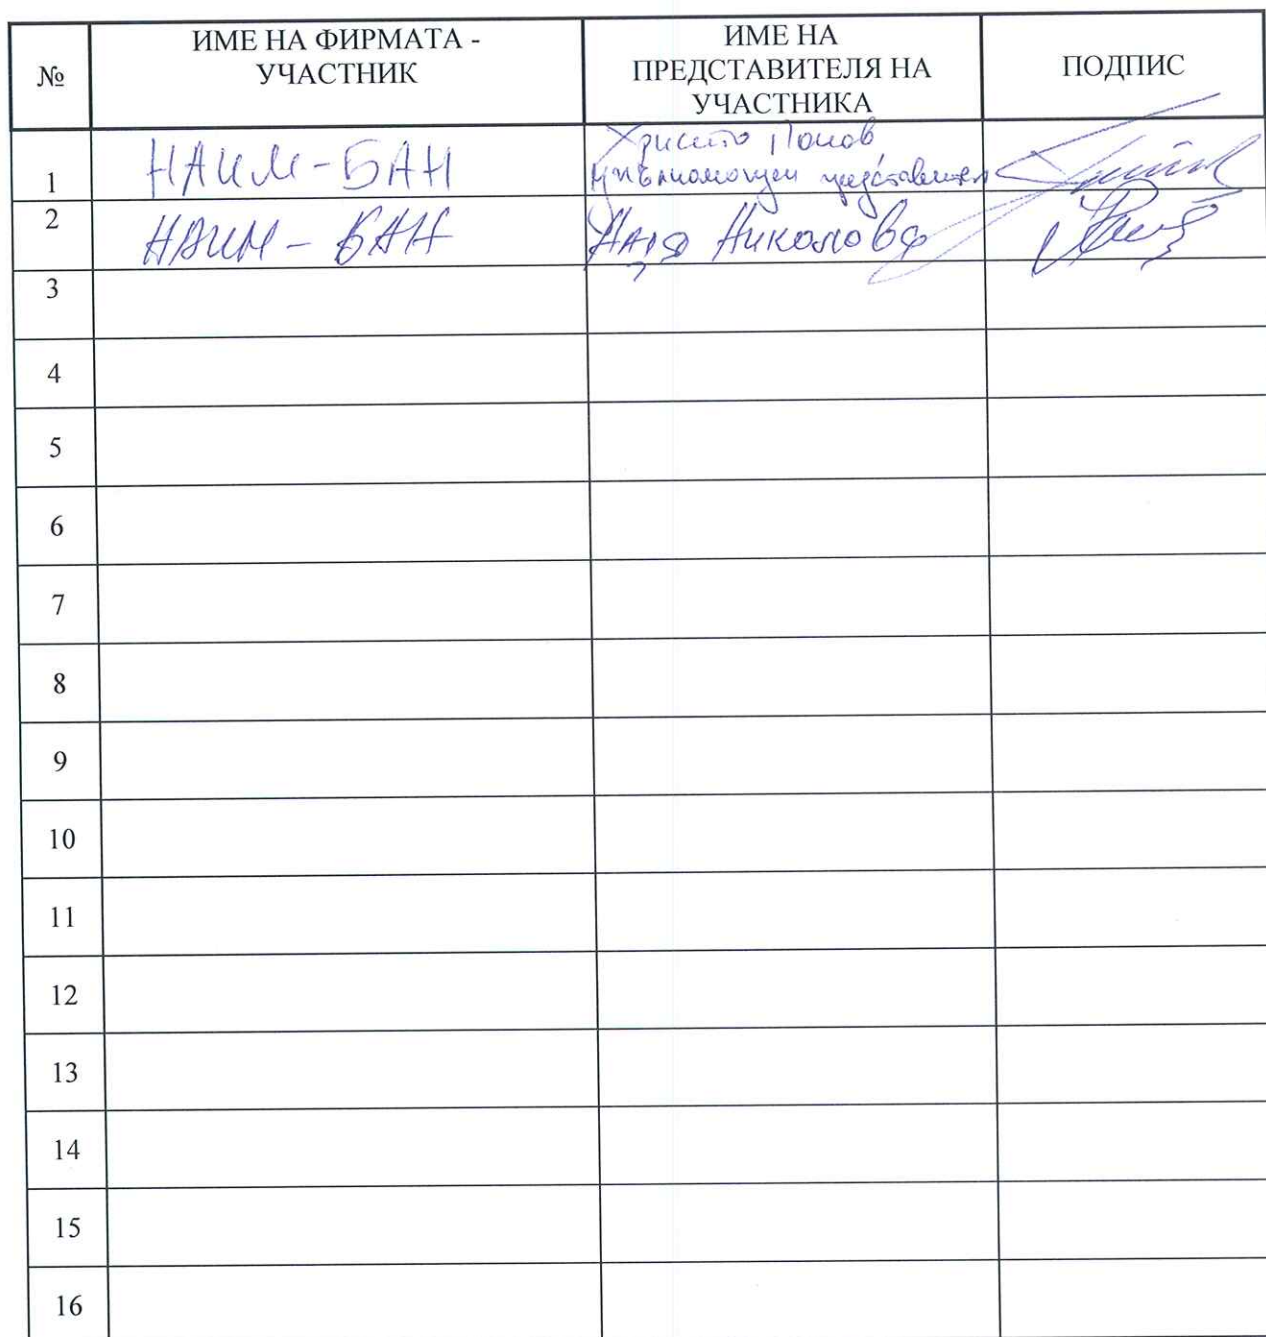 №
ИМЕ НА ФИРМАТА -
УЧАСТНИК
ИМЕ НА
ПРЕДСТАВИТЕЛЯ НА
УЧАСТНИКА
ПОДПИС
1
НАИМ-БАН
Христо Попов
упълномощен представител
2
НАИМ - БАН
Надя Николова
3
4
5
6
7
8
9
10
11
12
13
14
15
16